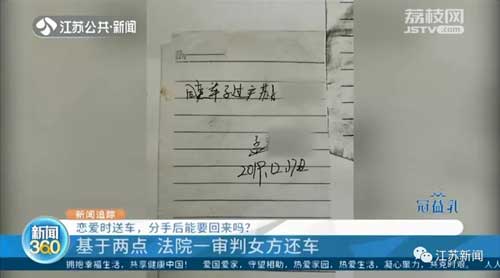 江苏公共·新闻
荔枝网
JSTV.com
同意车子过户给
2019.12.17日
新闻追踪
恋爱时送车，分手后能要回来吗？
新闻
360
基于两点 法院一审判女方还车
冠益乳
江苏新闻
拥抱幸福生活，共享健康中国！ 爱国爱家，守望相助，热爱家园，热爱生活，凝心聚力，共克时艰。